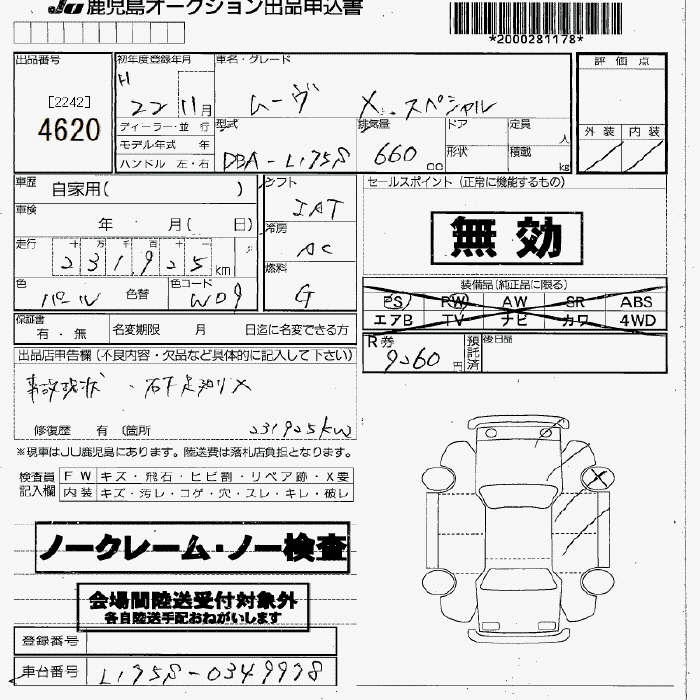 JU 鹿児島オークション出品申込書
*2000281178*
出品番号
[2242]
4620
初年度登録年月
H 22 11月
車名・グレード
ムーヴ X スペシャル
評価点
外装 内装
ディーラー・並 行
モデル年式 年
ハンドル 左・右
型式
DBA-L175S
排気量
660 cc
ドア
形状
定員 人
積載 kg
車歴 自家用( )
シフト
IAT
セールスポイント (正常に機能するもの)
無効
車検
年 月( 日)
冷房
AC
走行
十 万 千 百 十 一
231,925 km
色
パール 色替
色コード
W09
燃料
G
装備品(純正品に限る)
PS PW AW SR ABS
エアB TV ナビ カワ 4WD
保証書
有・無
名変期限 月 日迄に名変できる方
R券
9060円
預託済
後日品
出品店申告欄(不良内容・欠品など具体的に記入して下さい)
事故現状
231925km
修復歴 有 (箇所
※現車はJU鹿児島にあります。陸送費は落札店負担となります。
検査員記入欄
FW キズ・飛石・ヒビ割・リペア跡・X要
内装 キズ・汚レ・コゲ・穴・スレ・キレ・破レ
ノークレーム・ノー検査
会場間陸送受付対象外
各自陸送手配おねがいします
登録番号
車台番号 L175S-0349978